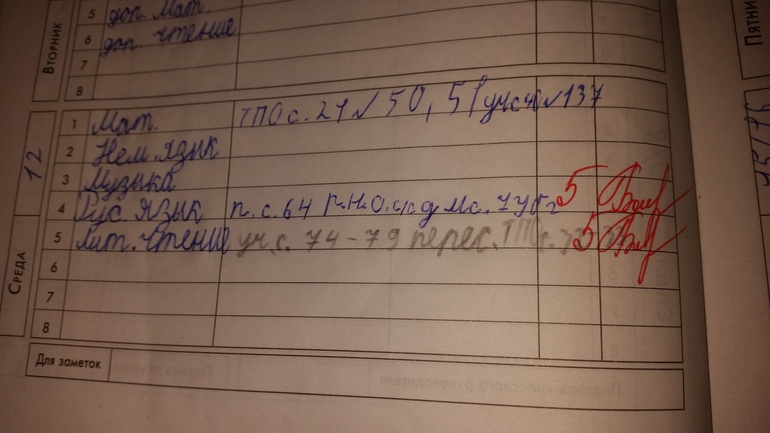 5 доп. мат.
ВТОРНИК
6 доп. чтение
7
8
ПЯТНИ
12
СРЕДА
1 Мат. ТПО с. 21 № 50, 51 уч с 40 № 137
2 Нем. язык
3 Музыка
4 Рус. язык п. с. 64 5
5 Лит. чтение уч. с. 74-79 перес. ТПО с. 5
6
7
8
Для заметок
Подпись классного руководителя